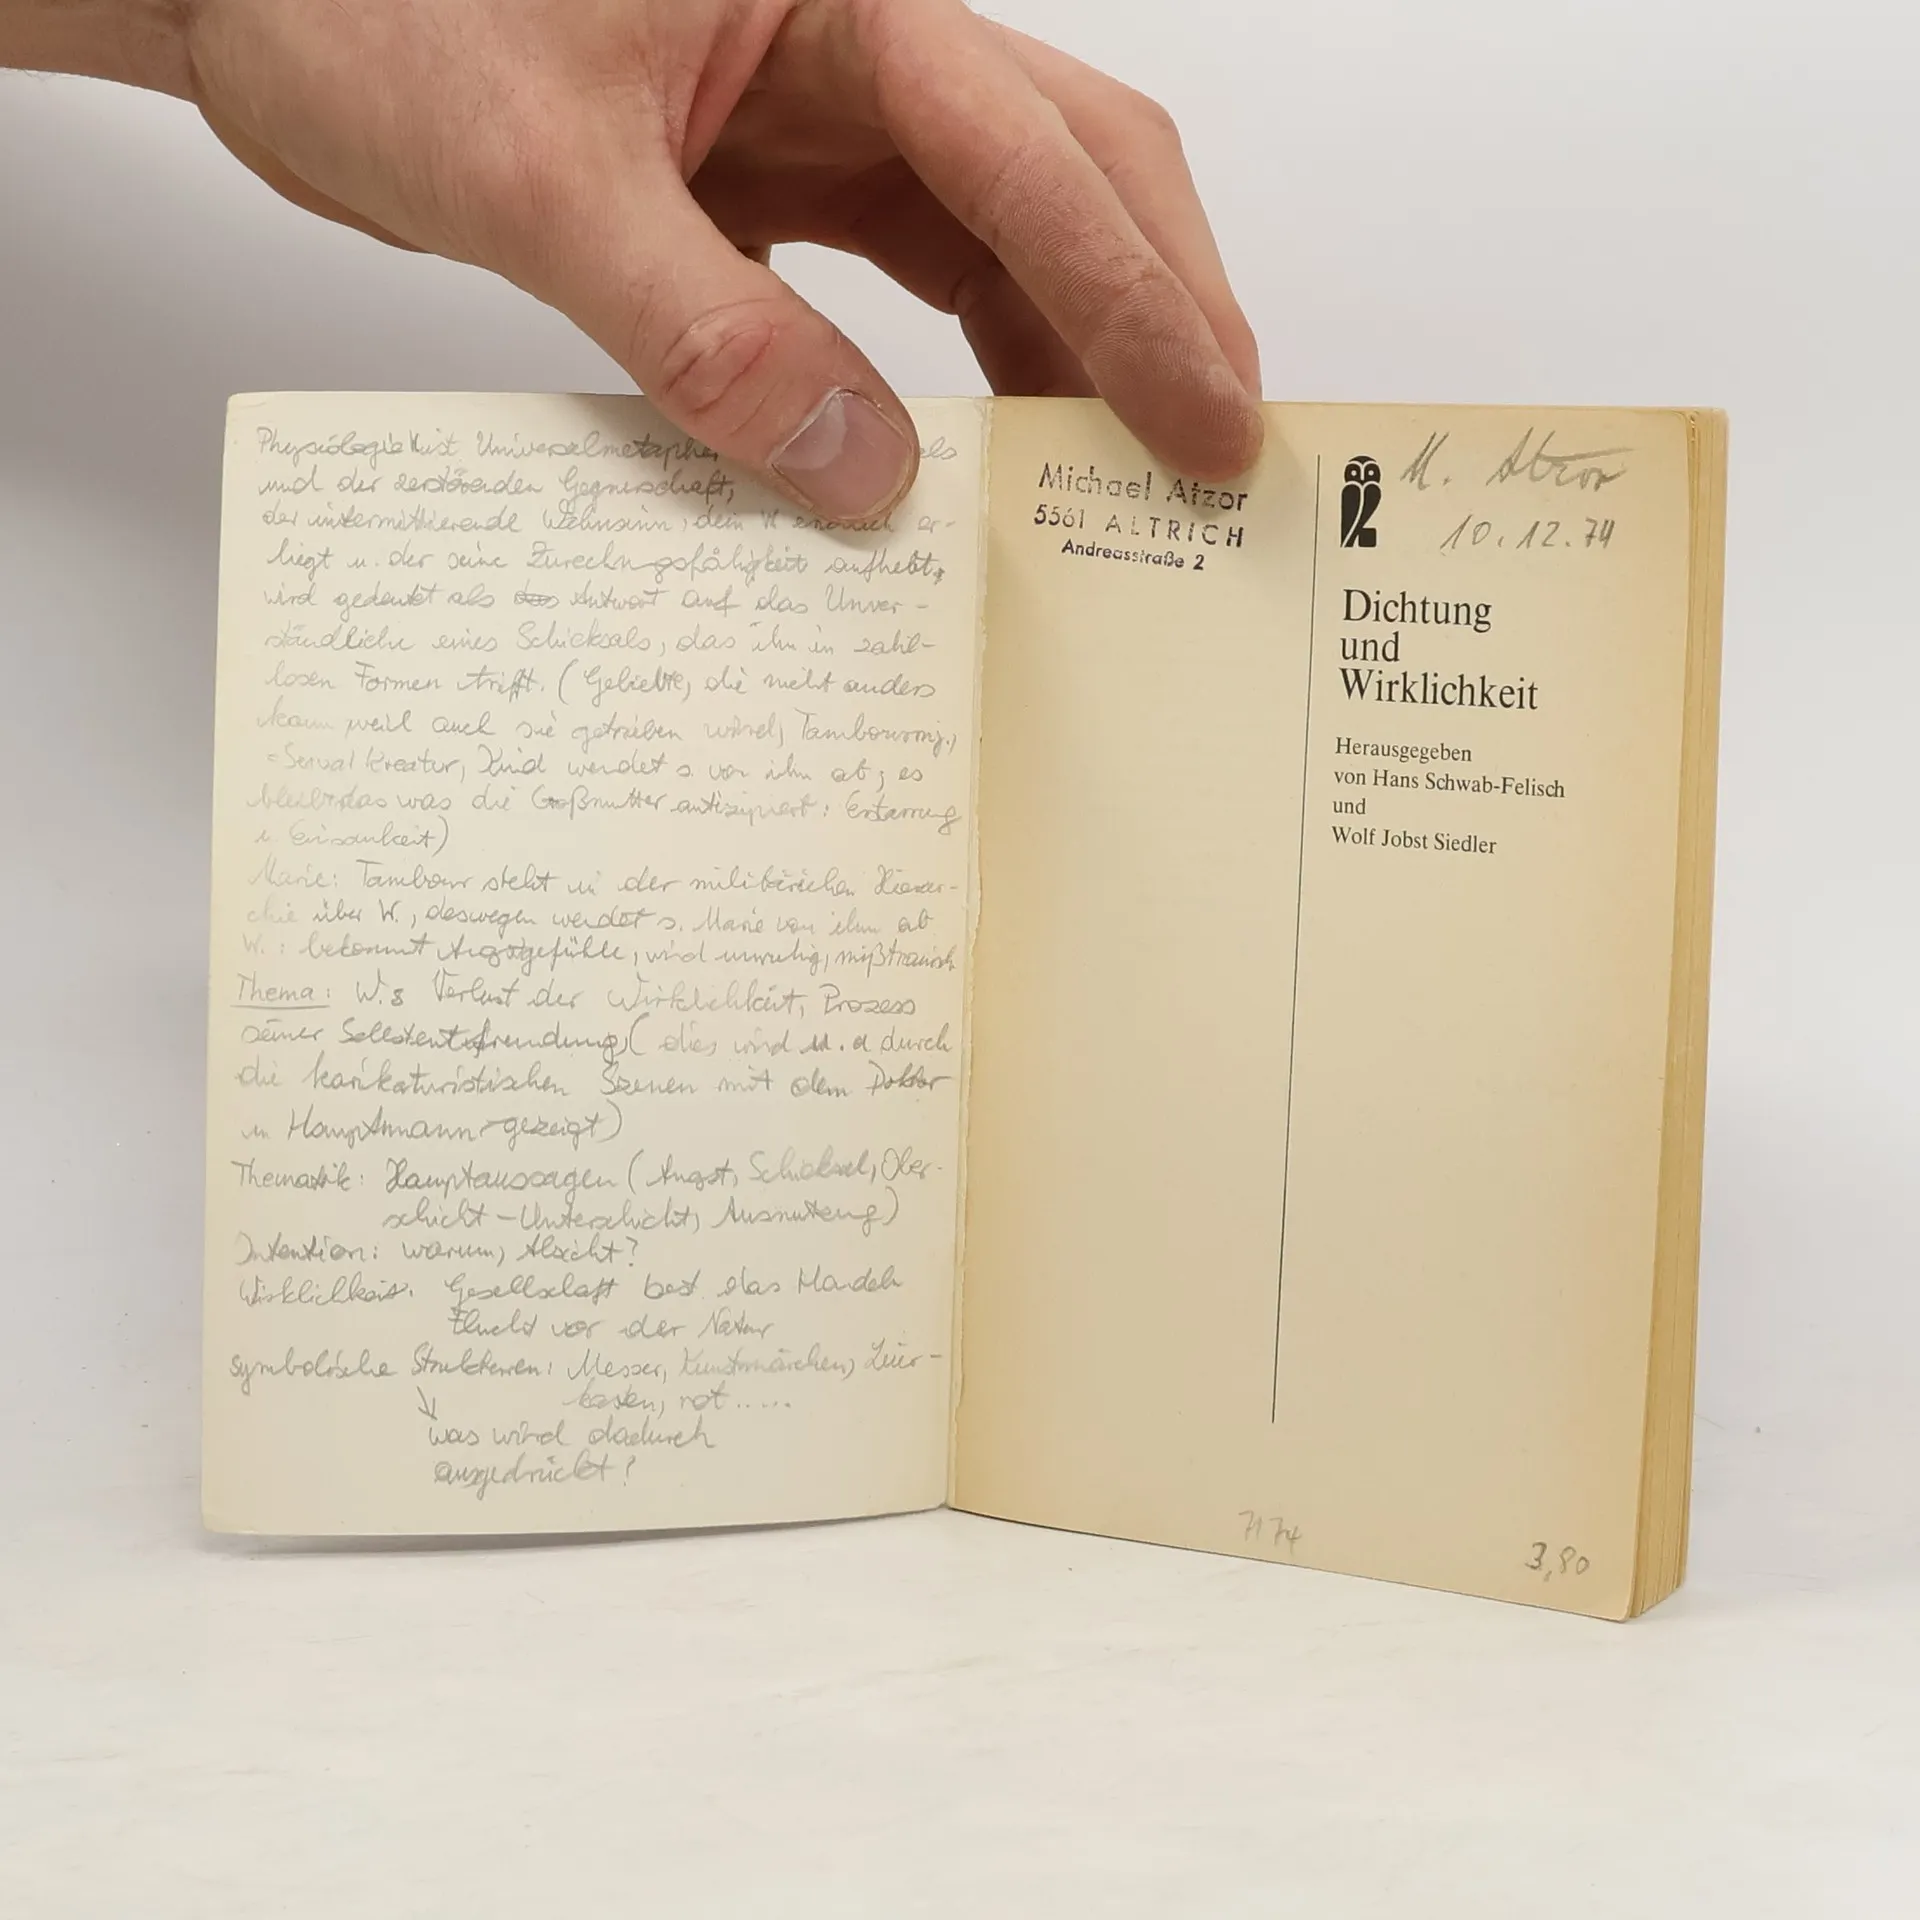 Physiologie ist Universalmetapher
und der zerstörenden Gegnerschaft,
der intermittierende Wahnsinn, dem W endlich er-
liegt u. der seine Zurechnungsfähigkeit aufhebt,
wird gedeutet als Antwort auf das Unver-
ständliche eines Schicksals, das ihn in zahl-
losen Formen trifft. (Geliebte, die nicht anders
kann weil auch sie getrieben wird, Tambourmj.,
Kreatur, Kind wendet s. von ihm ab; es
bleibt das was die Großmutter antizipiert: Erstarrung
u. Einsamkeit)
Marie: Tambour steht in der militärischen Hierar-
chie über W., deswegen wendet s. Marie von ihm ab
W.: bekommt Angstgefühle, wird unruhig, mißtrauisch
Thema: W.s Verlust der Wirklichkeit, Prozess
seiner Selbstentfremdung (dies wird u. a durch
die karikaturistischen Szenen mit dem Doktor
u Hauptmann gezeigt)
Thematik: Hauptaussagen (Angst, Schicksal, Ober-
schicht - Unterschicht, Ausnutzung)
Intention: warum, Absicht?
Wirklichkeit. Gesellschaft best das Handeln
Flucht vor der Natur
symbolische Strukturen: Messer, Kunstmärchen, Leier-
kasten, rot.....
was wird dadurch
ausgedrückt?
Michael Atzor
5561 ALTRICH
Andreasstraße 2
M. Atzor
10.12.74
Dichtung
und
Wirklichkeit
Herausgegeben
von Hans Schwab-Felisch
und
Wolf Jobst Siedler
7174
3,80